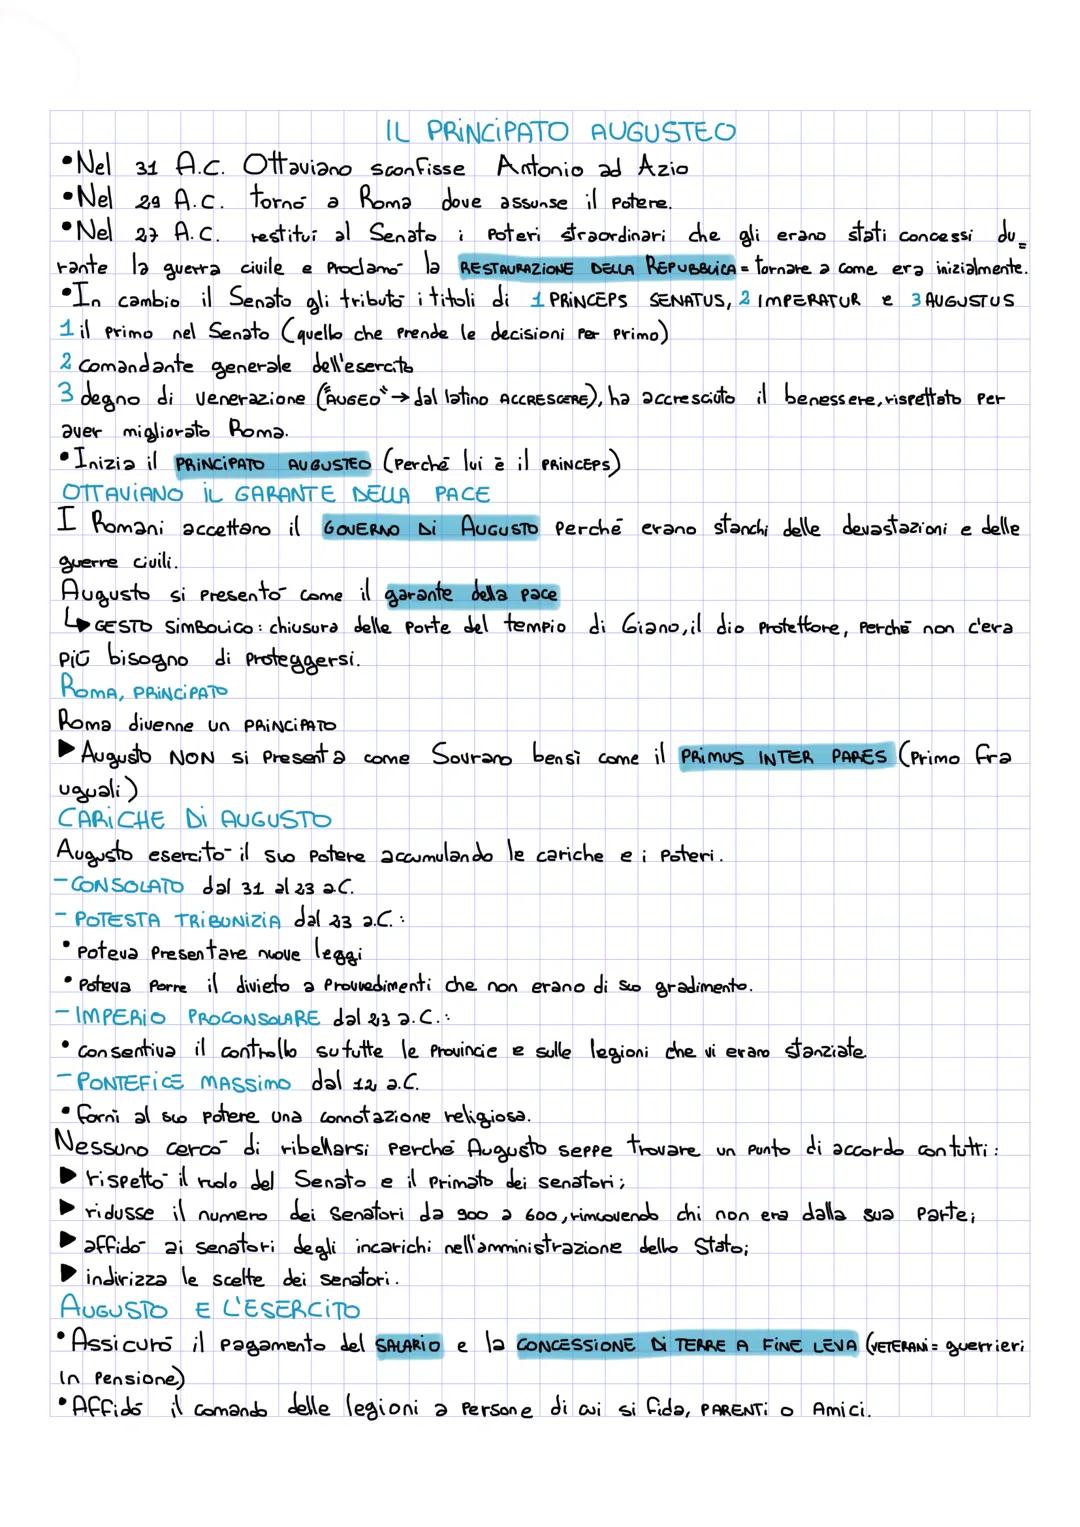 IL PRINCIPATO AUGUSTEO
•Nel 31 A.C. Ottaviano sconfisse Antonio ad Azio
•Nel 29 A.C. tornò a Roma dove assunse il potere.
•Nel 27 A.C. restituì al Senato i poteri straordinari che gli erano stati concessi du_
rante la guerra civile e proclamò la RESTAURAZIONE DELLA REPUBBLICA = tornare a come era inizialmente.
•In cambio il Senato gli tributò i titoli di 1 PRINCEPS SENATUS, 2 IMPERATUR e 3 AUGUSTUS
1 il primo nel Senato (quello che prende le decisioni per primo)
2 comandante generale dell'esercito
3 degno di venerazione ("AUGEO" → dal latino ACCRESCERE), ha accresciuto il benessere, rispettato per
aver migliorato Roma.
•Inizia il PRINCIPATO AUGUSTEO (perché lui è il PRINCEPS)
OTTAVIANO IL GARANTE DELLA PACE
I Romani accettano il GOVERNO DI AUGUSTO perché erano stanchi delle devastazioni e delle
guerre civili.
Augusto si presentò come il garante della pace
↳ GESTO SIMBOLICO: chiusura delle porte del tempio di Giano, il dio protettore, perché non c'era
più bisogno di proteggersi.
ROMA, PRINCIPATO
Roma divenne un PRINCIPATO
▶ Augusto NON si presenta come Sovrano bensì come il PRIMUS INTER PARES (primo fra
uguali)
CARICHE DI AUGUSTO
Augusto esercitò il suo potere accumulando le cariche e i poteri.
- CONSOLATO dal 31 al 23 a.C.
- POTESTA TRIBUNIZIA dal 23 a.C.:
• poteva presentare nuove leggi
• poteva porre il divieto a provvedimenti che non erano di suo gradimento.
- IMPERIO PROCONSOLARE dal 23 a.C.:
• consentiva il controllo su tutte le provincie e sulle legioni che vi erano stanziate
- PONTEFICE MASSIMO dal 12 a.C.
• fornì al suo potere una connotazione religiosa.
Nessuno cercò di ribellarsi perché Augusto seppe trovare un punto di accordo con tutti:
▶ rispettò il ruolo del Senato e il primato dei senatori;
▶ ridusse il numero dei senatori da 900 a 600, rimuovendo chi non era dalla sua parte;
▶ affidò ai senatori degli incarichi nell'amministrazione dello Stato;
▶ indirizza le scelte dei senatori.
AUGUSTO E L'ESERCITO
•Assicurò il pagamento del SALARIO e la CONCESSIONE DI TERRE A FINE LEVA (VETERANI = guerrieri
in pensione)
•Affidò il comando delle legioni a persone di cui si fida, PARENTI o Amici.